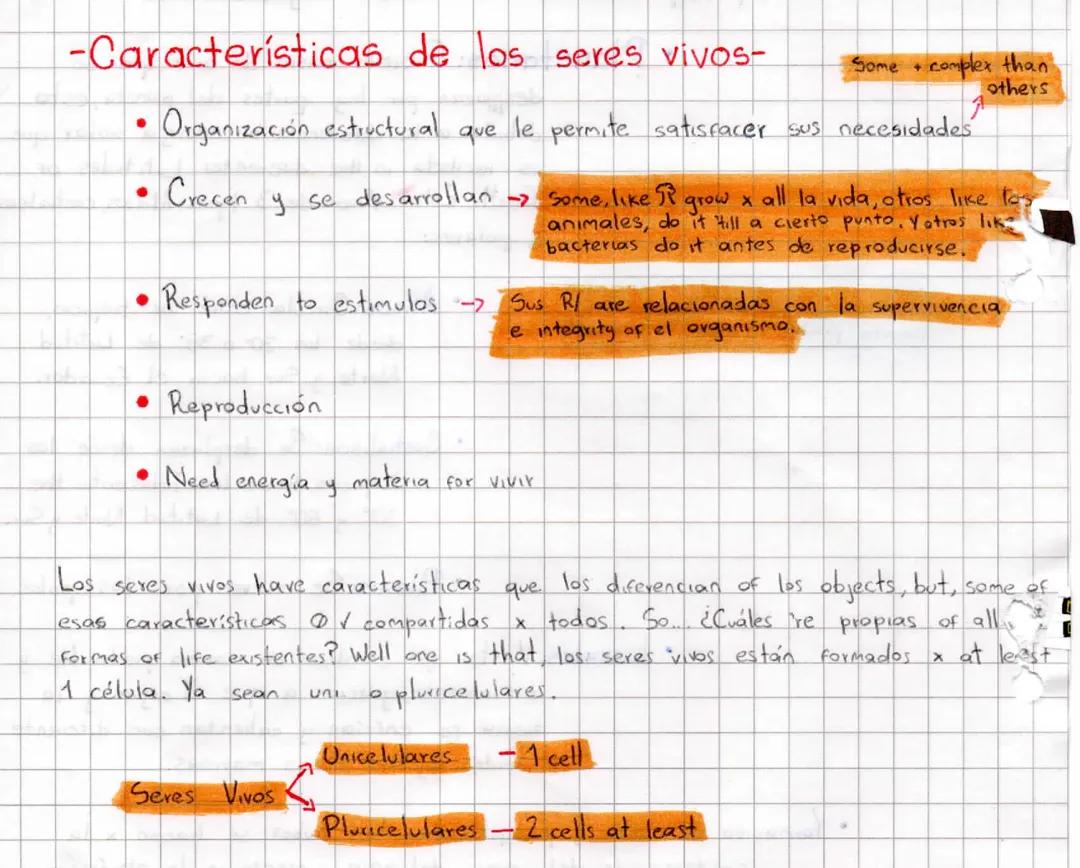 -Características de los seres vivos-
Some + complex than
others
• Organización estructural que le permite satisfacer sus necesidades
• Crecen y se desarrollan → Some, like grow x all la vida, otros like las
animales, do it till a cierto punto. Y otros like
bacterias do it antes de reproducirse.
• Responden to estimulos → Sus R/ are relacionadas con la supervivencia
e integrity of el organismo.
• Reproducción
• Need energía y materia for vivir
Los seres vivos have características que los diferencian of los objects, but, some of
esas características compartidas x todos. So... ¿Cuáles 're propias of all
formas of life existentes? Well one is that, los seres vivos están formados x at least
1 célula. Ya sean uni o pluricelulares.
Unicelulares - 1 cell
Seres Vivos
Pluricelulares - 2 cells at least